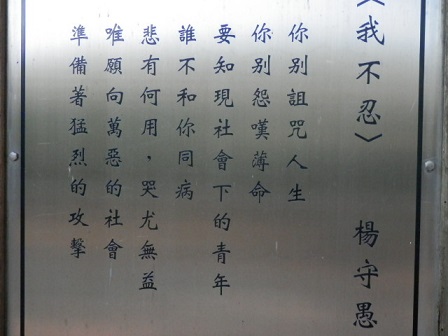 〈我不忍〉 楊守愚
你別詛咒人生
你別怨嘆薄命
要知現社會下的青年
誰不和你同病
悲有何用，哭尤無益
唯願向萬惡的社會
準備著猛烈的攻擊